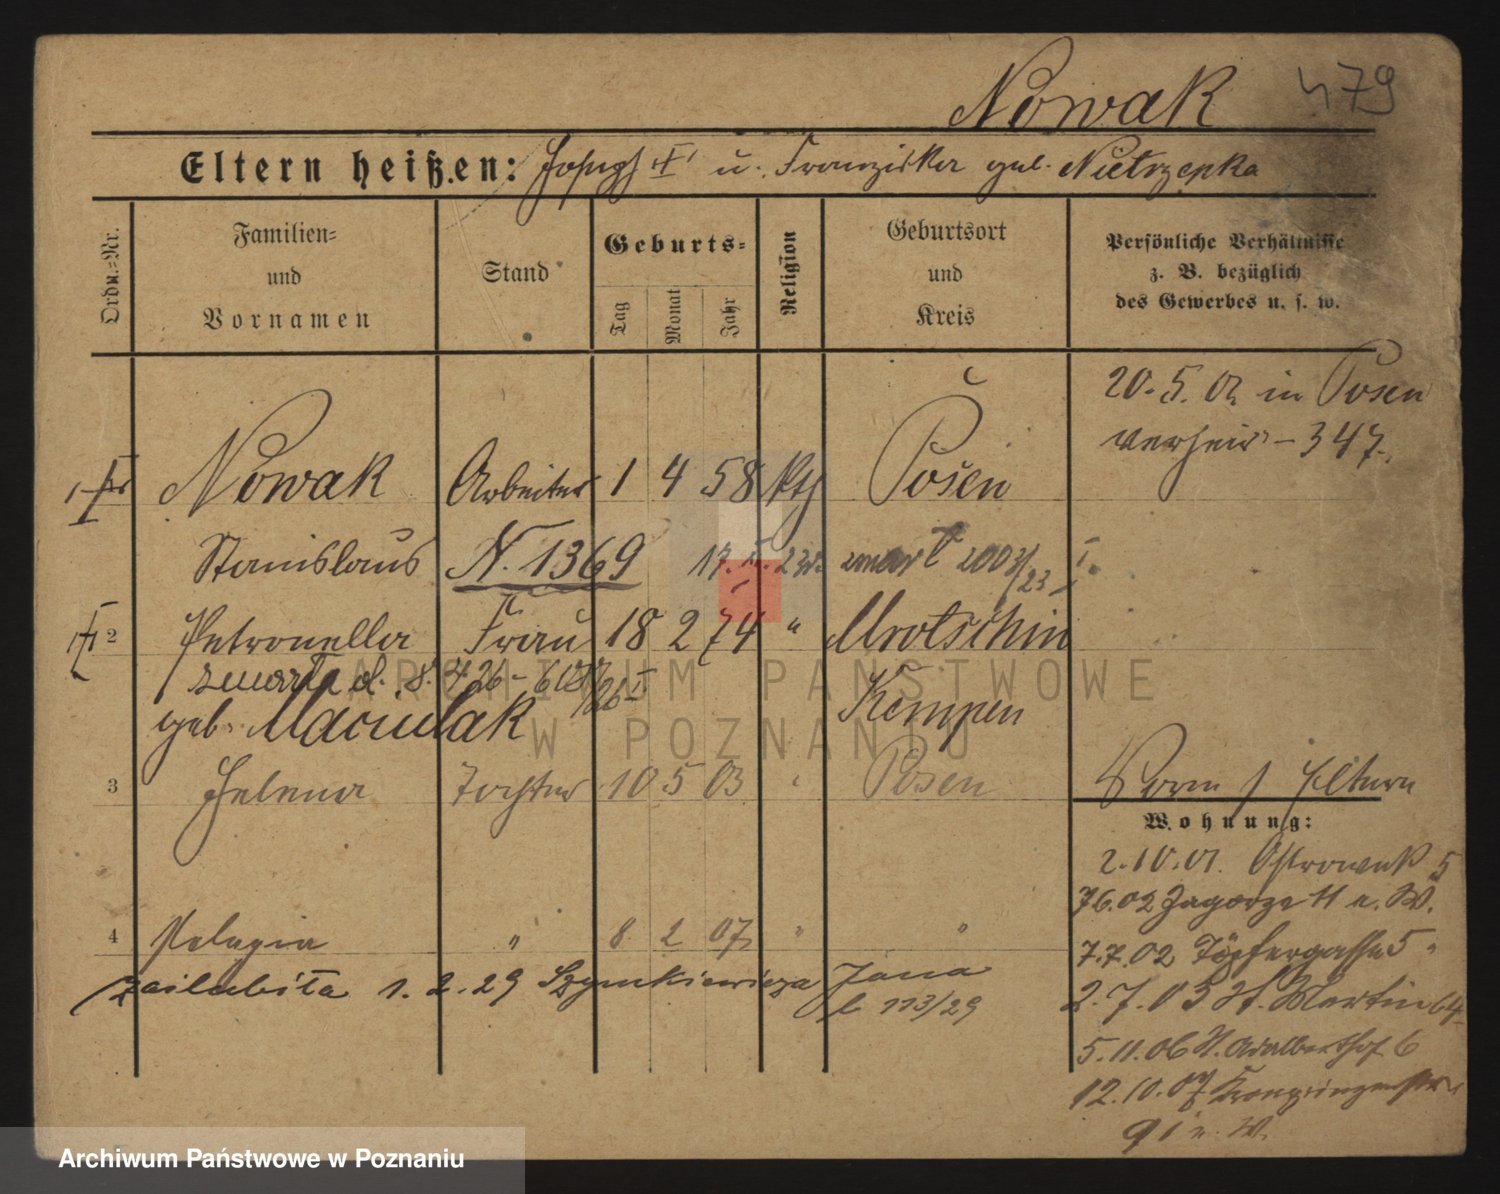 Nowak 479
Eltern heißen: Joseph † u. Franziska geb. Nietrzepka
Ordn.=Nr.
Familien=
und
Vornamen
Stand
Geburts=
Tag
Monat
Jahr
Religion
Geburtsort
und
Kreis
Persönliche Verhältnisse
z. B. bezüglich
des Gewerbes u. s. w.
20.5.02 in Posen
verheir. - 347.
1 Nowak Arbeiter 1 4 58 kth Posen
Stanislaus N. 1369 23 zmarł 2003/23 I.
2 Petronella Frau 18 2 74 " Mrotschin
zmarła d. 8. 4 26 - 26 I
geb. Maciulak Kempen
3 Helena Tochter 10 5 03 " Posen
Eltern
Wohnung:
2.10.01. 5
7.6.02 Zagorze 11 u. W.
4 Pelagia " 8 2 07 " "
7.7.02 Töpfergasse 5 "
zaślubiła 1. 2. 29 Szymkiewicza Jana
2.7.03 St. Martin 64
L 113/29
5.11.06 St. Adalberthof 6
12.10.07 Kronprinzenstr.
91 u. W.
ARCHIWUM PAŃSTWOWE
W POZNANIU
Archiwum Państwowe w Poznaniu